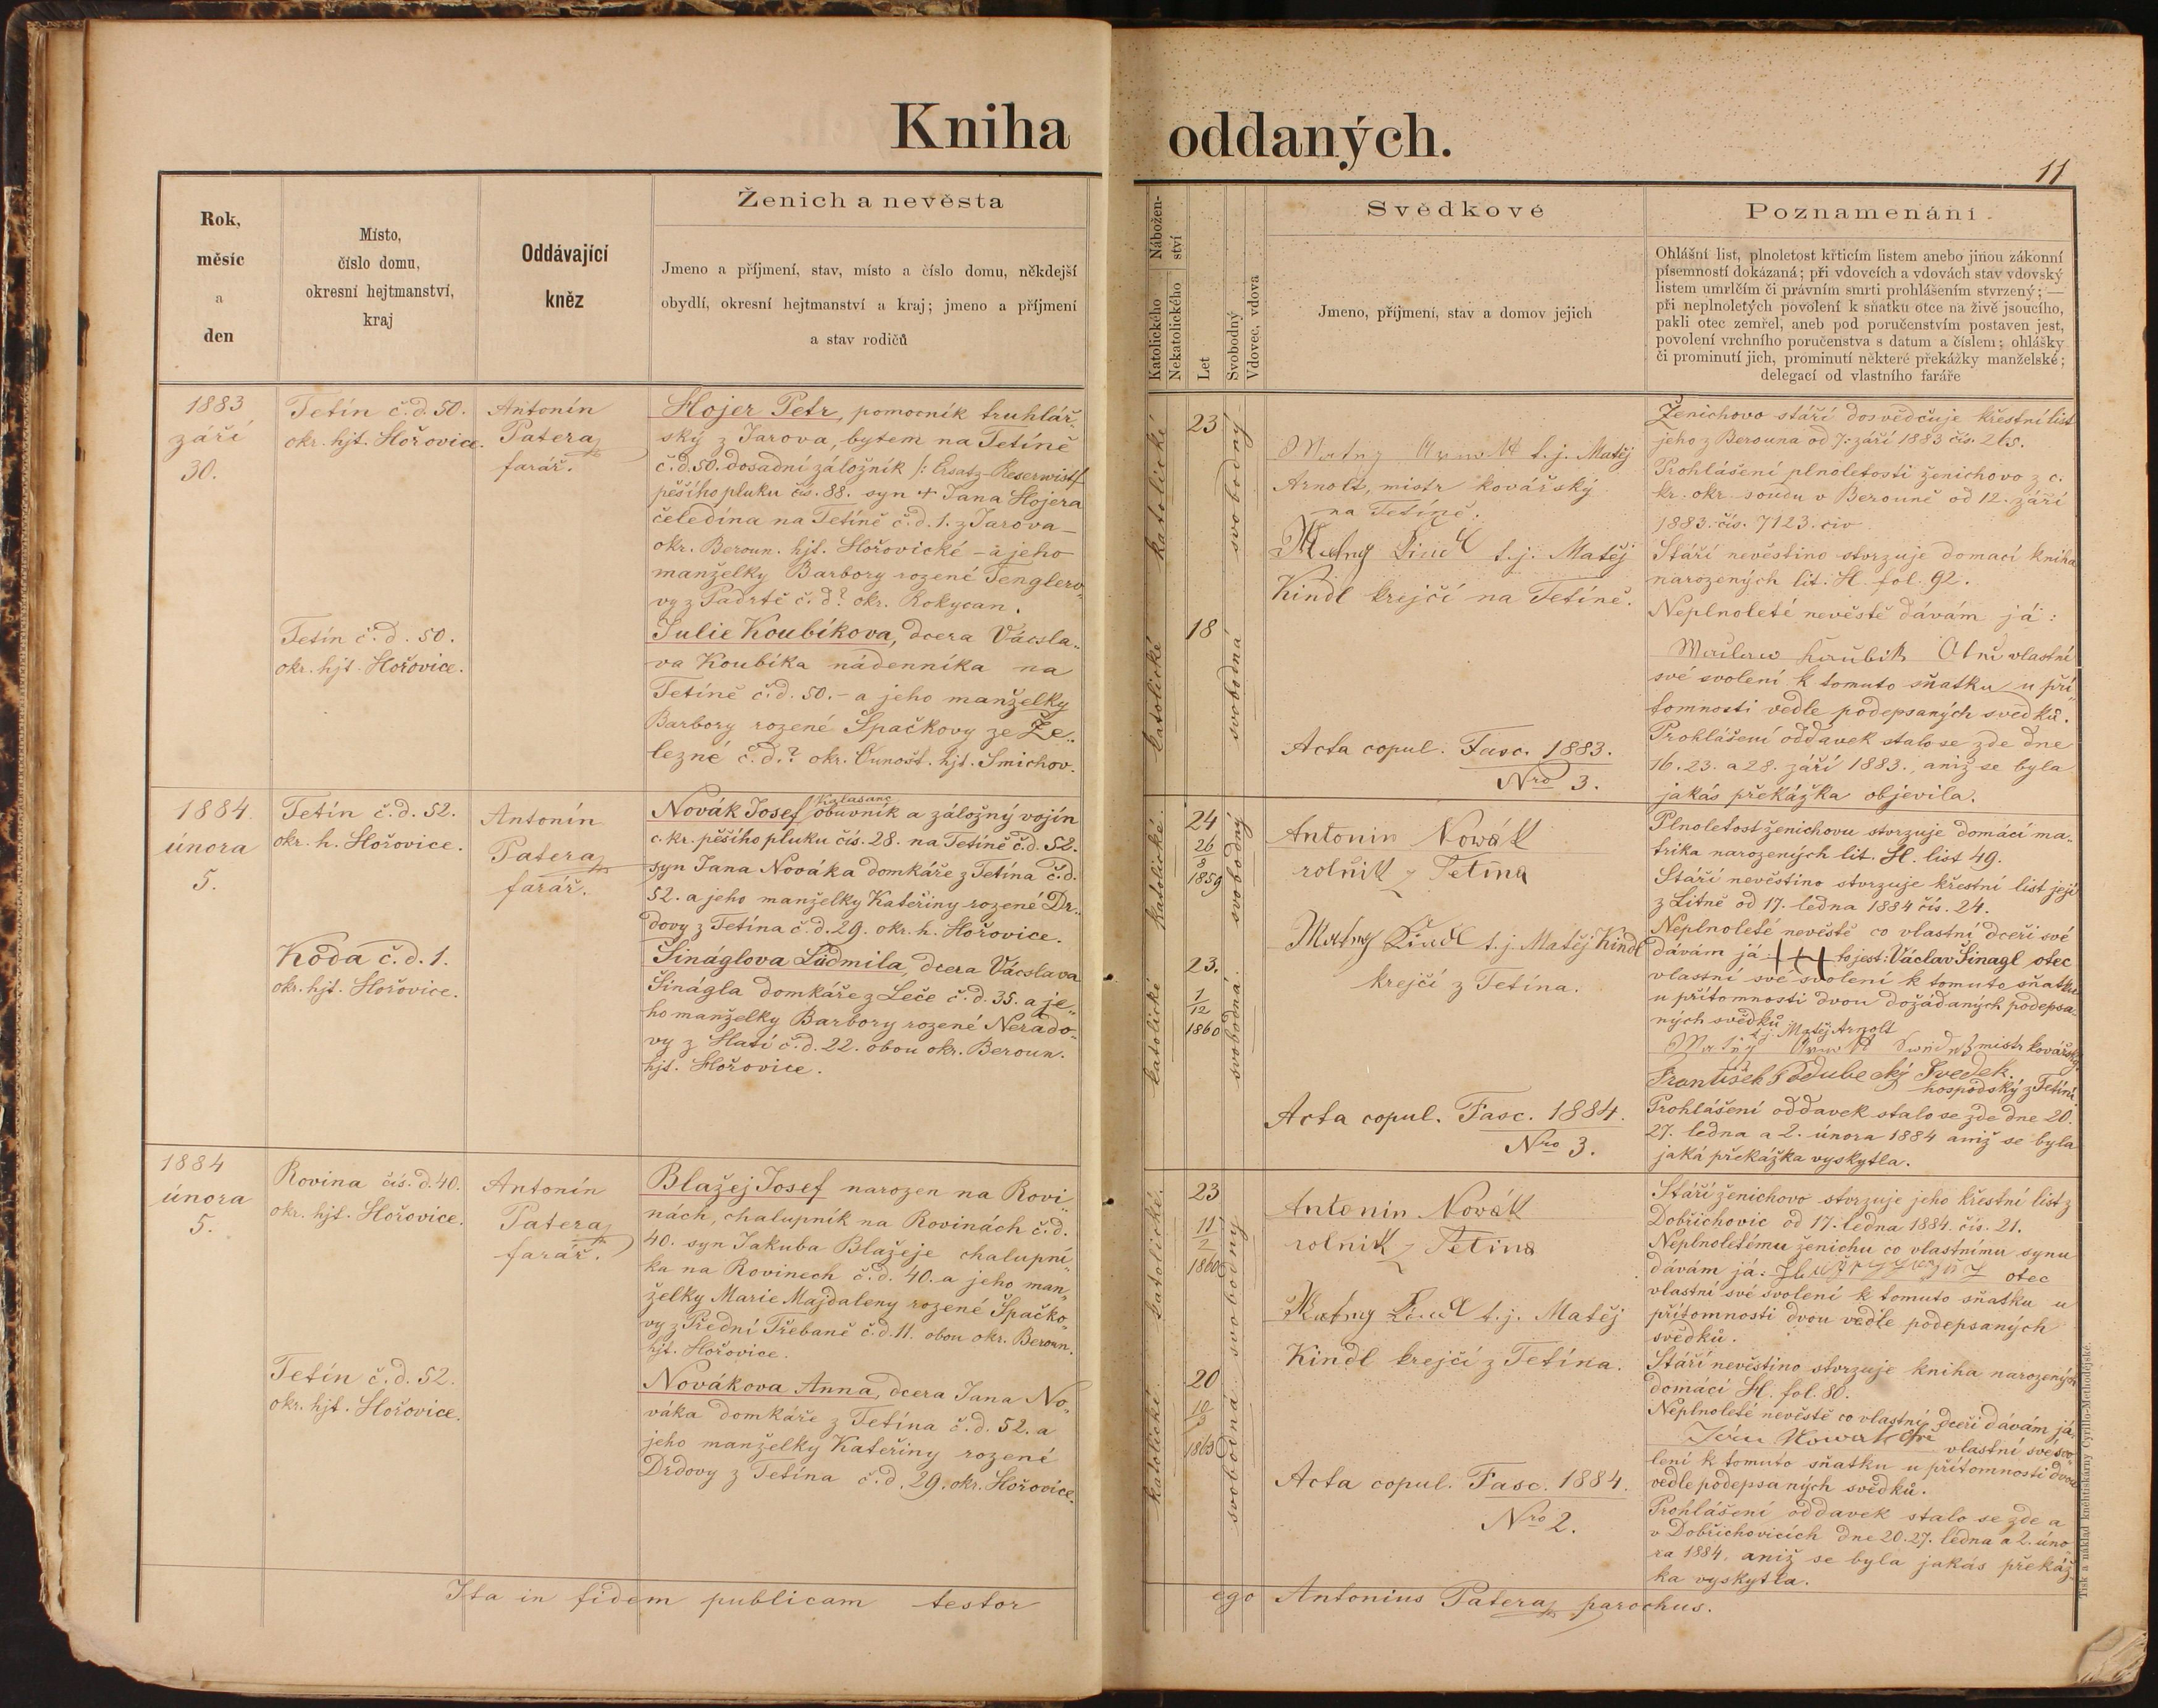 Kniha oddaných.
11
Rok,
měsíc
a
den
Místo,
číslo domu,
okresní hejtmanství,
kraj
Oddávající
kněz
Ženich a nevěsta
Jmeno a příjmení, stav, místo a číslo domu, někdejší
obydlí, okresní hejtmanství a kraj; jmeno a příjmení
a stav rodičů
Nábožen-
ství
Katolického
Nekatolického
Let
Svobodný
Vdovec, vdova
Svědkové
Jmeno, příjmení, stav a domov jejich
Poznamenání
Ohlášní list, plnoletost křticím listem anebo jinou zákonní
písemností dokázaná; při vdovcích a vdovách stav vdovský
listem umrlčím či právním smrti prohlášením stvrzený; —
při neplnoletých povolení k sňatku otce na živě jsoucího,
pakli otec zemřel, aneb pod poručenstvím postaven jest,
povolení vrchního poručenstva s datum a číslem; ohlášky
či prominutí jich, prominutí některé překážky manželské;
delegací od vlastního faráře
1883
září
30.
Tetín č.d. 50.
okr. hjt. Hořovice.
Antonín
Patera
farář.
Hojer Petr, pomocník truhlář-
ský z Jarova, bytem na Tetíně
č.d. 50. dosadní záložník /: Ersatz-Reserwist/
pěšího pluku čís. 88. syn + Jana Hojera
čeledína na Tetíně č.d. 1. z Jarova –
okr. Beroun. hjt. Hořovické – a jeho
manželky Barbory rozené Tenglero„
vy z Padrtě č.d? okr. Rokycan.
Tetín č.d. 50.
okr. hjt. Hořovice.
Julie Koubíkova, dcera Vácsla„
va Koubíka nádenníka na
Tetíně č.d. 50. – a jeho manželky
Barbory rozené Špačkovy ze Že„
lezné č.d.? okr. Unošt. hjt. Smichov.
katolické
23
svobodný
katolické
18
svobodná
t.j. Matěj
Arnolt, mistr kovářský
na Tetíně.
t.j. Matěj
Kindl krejčí na Tetíně.
Acta copul. Fasc. 1883.
Nro 3.
Ženichovo stáří dosvědčuje křestní list
jeho z Berouna od 7. září 1883 čís. 265.
Prohlášení plnoletosti ženichovo z c.
kr. okr. soudu v Berouně od 12. září
1883. čís. 7123. civ.
Stáří nevěstino stvrzuje domací kniha
narozených lit. H. fol. 92.
Neplnoleté nevěstě dávám já:
vlastní
své svolení k tomuto sňatku u pří„
tomnosti vedle podepsaných svedků.
Prohlášení oddavek stalo se zde dne
16. 23. a 28. září 1883., aniz se byla
jakás překážka objevila.
1884.
února
5.
Tetín č.d. 52.
okr. h. Hořovice.
Antonín
Patera
farář.
Kalasanc
Novák Josef obuvník a záložný vojín
c. kr. pěšího pluku čís. 28. na Tetíně č.d. 52.
syn Jana Nováka domkáře z Tetína č.d.
52. a jeho manželky Kateřiny rozené Dr„
dovy z Tetína č.d. 29. okr. h. Hořovice.
Koda č.d. 1.
okr. hjt. Hořovice.
Šináglova Ludmila, dcera Vácslava
Šinágla domkáře z Leče č.d. 35. a je„
ho manželky Barbory rozené Nerado„
vy z Hatí č.d. 22. obou okr. Beroun.
hjt. Hořovice.
katolické
24
26
8
1859
svobodný
katolické
23.
1
12
1860
svobodná
Antonin Nowák
rolnik z Tetina
t.j. Matěj Kindl
krejčí z Tetína.
Acta copul. Fasc. 1884.
Nro 3.
Plnoletost ženichovu stvrzuje domácí ma„
trika narozených lit. H. list 49.
Stáří nevěstino stvrzuje křestní list její
z Litně od 17. ledna 1884 čís. 24.
Neplnoleté nevěstě co vlastní dceři své
dávám já +++ to jest: Václav Šinagl otec
vlastní své svolení k tomuto sňatku
u přítomnosti dvou dožádaných podepsa„
ných svědků
t.j. Matěj Arnolt
mistr kovářský
František Podubecký Svedek.
hospodský z Tetína
Prohlášení oddavek stalo se zde dne 20.
27. ledna a 2. února 1884 aniž se byla
jaká překážka vyskytla.
1884
února
5.
Rovina čís. d. 40.
okr. hjt. Hořovice.
Antonín
Patera
farář.
Blažej Josef narozen na Rovi„
nách, chalupník na Rovinách č.d.
40. syn Jakuba Blažeje chalupní„
ka na Rovinech č.d. 40. a jeho man„
želky Marie Majdaleny rozené Špačko„
vy z Přední Třebaně č.d. 11. obou okr. Beroun.
hjt. Hořovice.
Tetín č.d. 52.
okr. hjt. Hořovice.
Novákova Anna, dcera Jana No„
váka domkáře z Tetína č.d. 52. a
jeho manželky Kateřiny rozené
Drdovy z Tetína č.d. 29. okr. Hořovice.
katolické
23
11
2
1860
svobodný
katolické
20
10
1863
svobodná
Antonin Nowák
rolnik z Tetina
t.j. Matěj
Kindl krejčí z Tetína.
Acta copul. Fasc. 1884.
Nro 2.
Stáří ženichovo stvrzuje jeho křestní list z
Dobřichovic od 17. ledna 1884. čís. 21.
Neplnoletému ženichu co vlastnímu synu
dávám já: otec
vlastní své svolení k tomuto sňatku u
přítomnosti dvou vedle podepsaných
svědků.
Stáří nevěstino stvrzuje kniha narozených
domácí H. fol. 80.
Neplnoleté nevěstě co vlastní dceři dávám já
vlastní své svo„
lení k tomuto sňatku u přítomnosti dvou
vedle podepsaných svědků.
Prohlášení oddavek stalo se zde a
v Dobřichovicích dne 20. 27. ledna a 2. úno„
ra 1884, aniž se byla jakás překáž„
ka vyskytla.
Ita in fidem publicam testor ego Antonius Patera parochus.
Tisk a náklad kněhtiskárny Cyrillo-Methodějské.